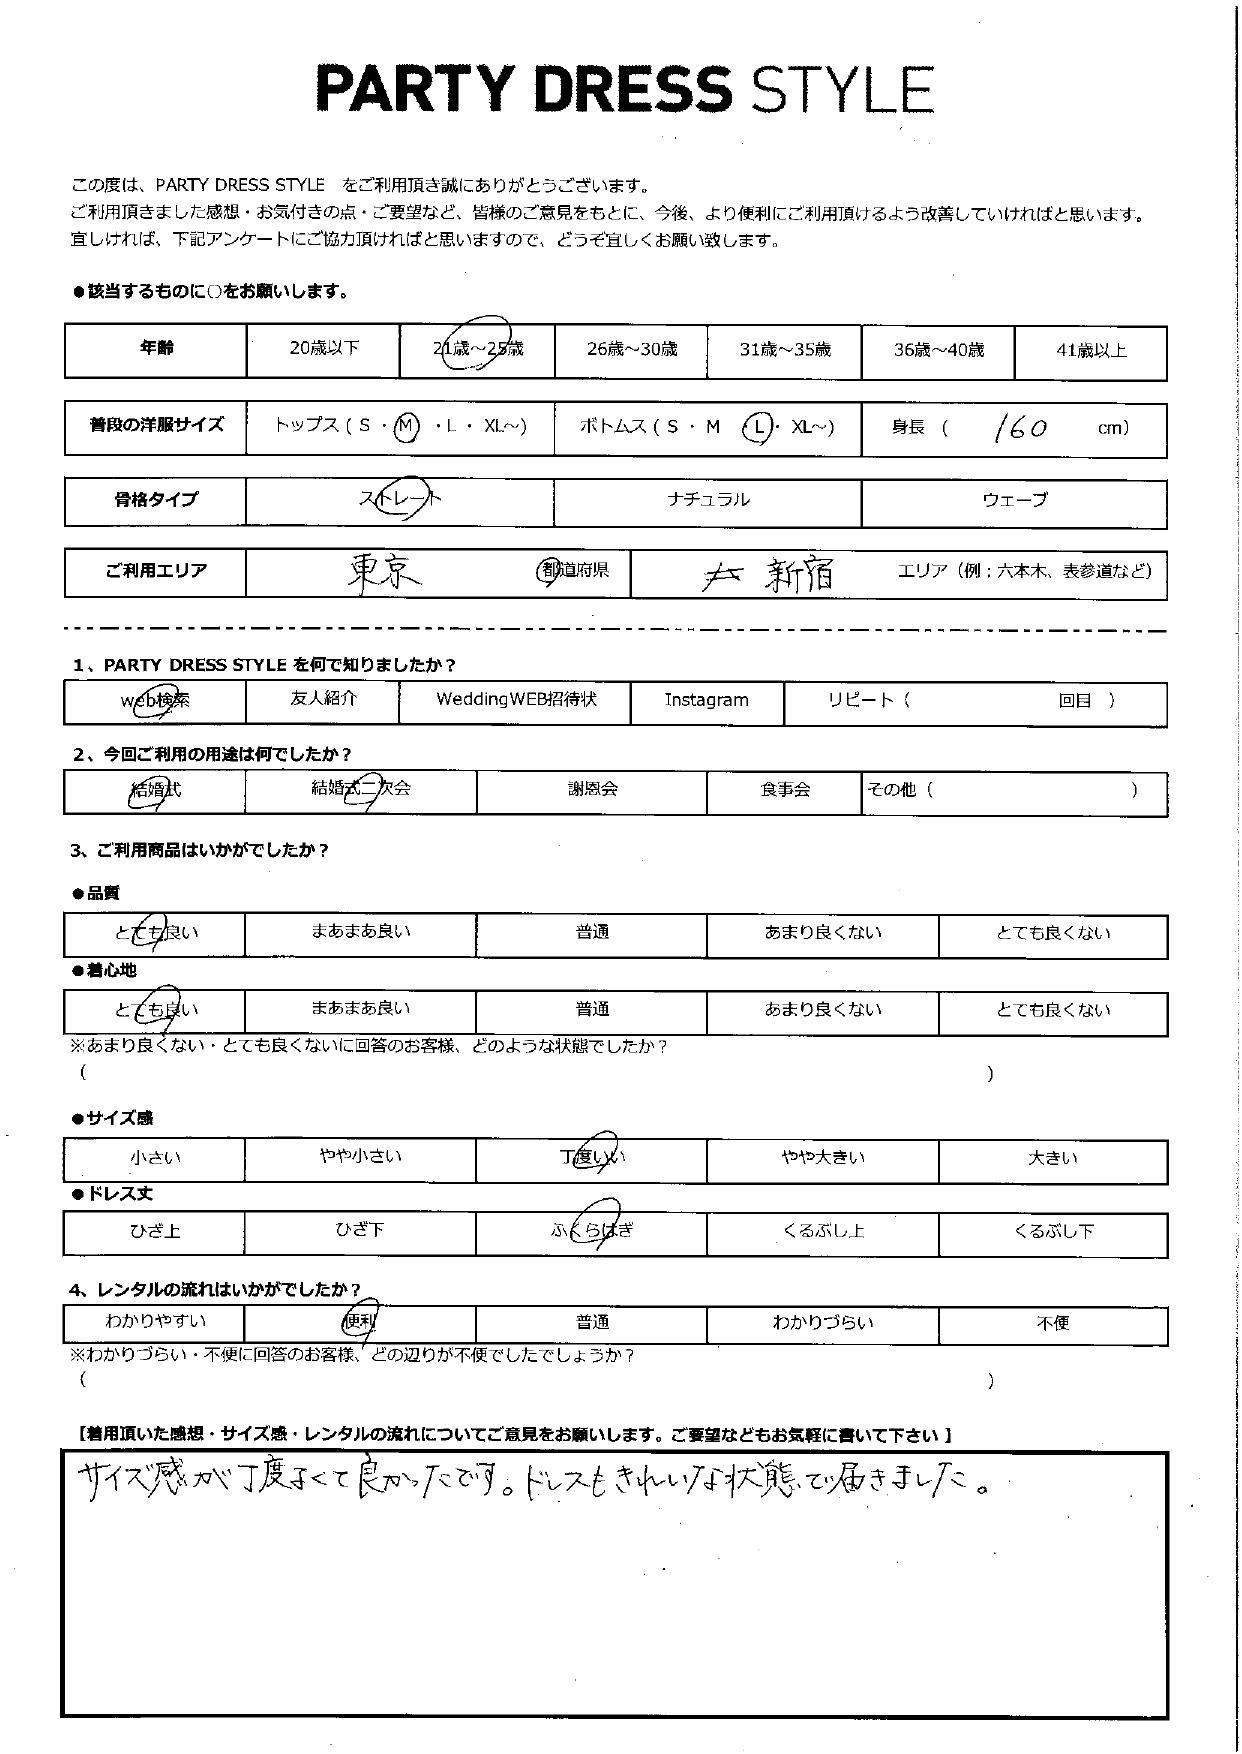 PARTY DRESS STYLE
この度は、PARTY DRESS STYLE をご利用頂き誠にありがとうございます。
ご利用頂きました感想・お気付きの点・ご要望など、皆様のご意見をもとに、今後、より便利にご利用頂けるよう改善していければと思います。
宜しければ、下記アンケートにご協力頂ければと思いますので、どうぞ宜しくお願い致します。
●該当するものに○をお願いします。
年齢 20歳以下 21歳～25歳 26歳～30歳 31歳～35歳 36歳～40歳 41歳以上
普段の洋服サイズ トップス ( S ・ M ・ L ・ XL～) ボトムス ( S ・ M L ・ XL～) 身長 ( 160 cm)
骨格タイプ ストレート ナチュラル ウェーブ
ご利用エリア 東京 都道府県 新宿 エリア（例：六本木、表参道など）
1、PARTY DRESS STYLE を何で知りましたか？
web検索 友人紹介 WeddingWEB招待状 Instagram リピート（ 回目 ）
2、今回ご利用の用途は何でしたか？
結婚式 結婚式二次会 謝恩会 食事会 その他（ ）
3、ご利用商品はいかがでしたか？
●品質
とても良い まあまあ良い 普通 あまり良くない とても良くない
●着心地
とても良い まあまあ良い 普通 あまり良くない とても良くない
※あまり良くない・とても良くないに回答のお客様、どのような状態でしたか？
（ ）
●サイズ感
小さい やや小さい 丁度いい やや大きい 大きい
●ドレス丈
ひざ上 ひざ下 ふくらはぎ くるぶし上 くるぶし下
4、レンタルの流れはいかがでしたか？
わかりやすい 便利 普通 わかりづらい 不便
※わかりづらい・不便に回答のお客様、どの辺りが不便でしたでしょうか？
（ ）
【着用頂いた感想・サイズ感・レンタルの流れについてご意見をお願いします。ご要望などもお気軽に書いて下さい 】
サイズ感が丁度よくて良かったです。ドレスもきれいな状態で届きました。